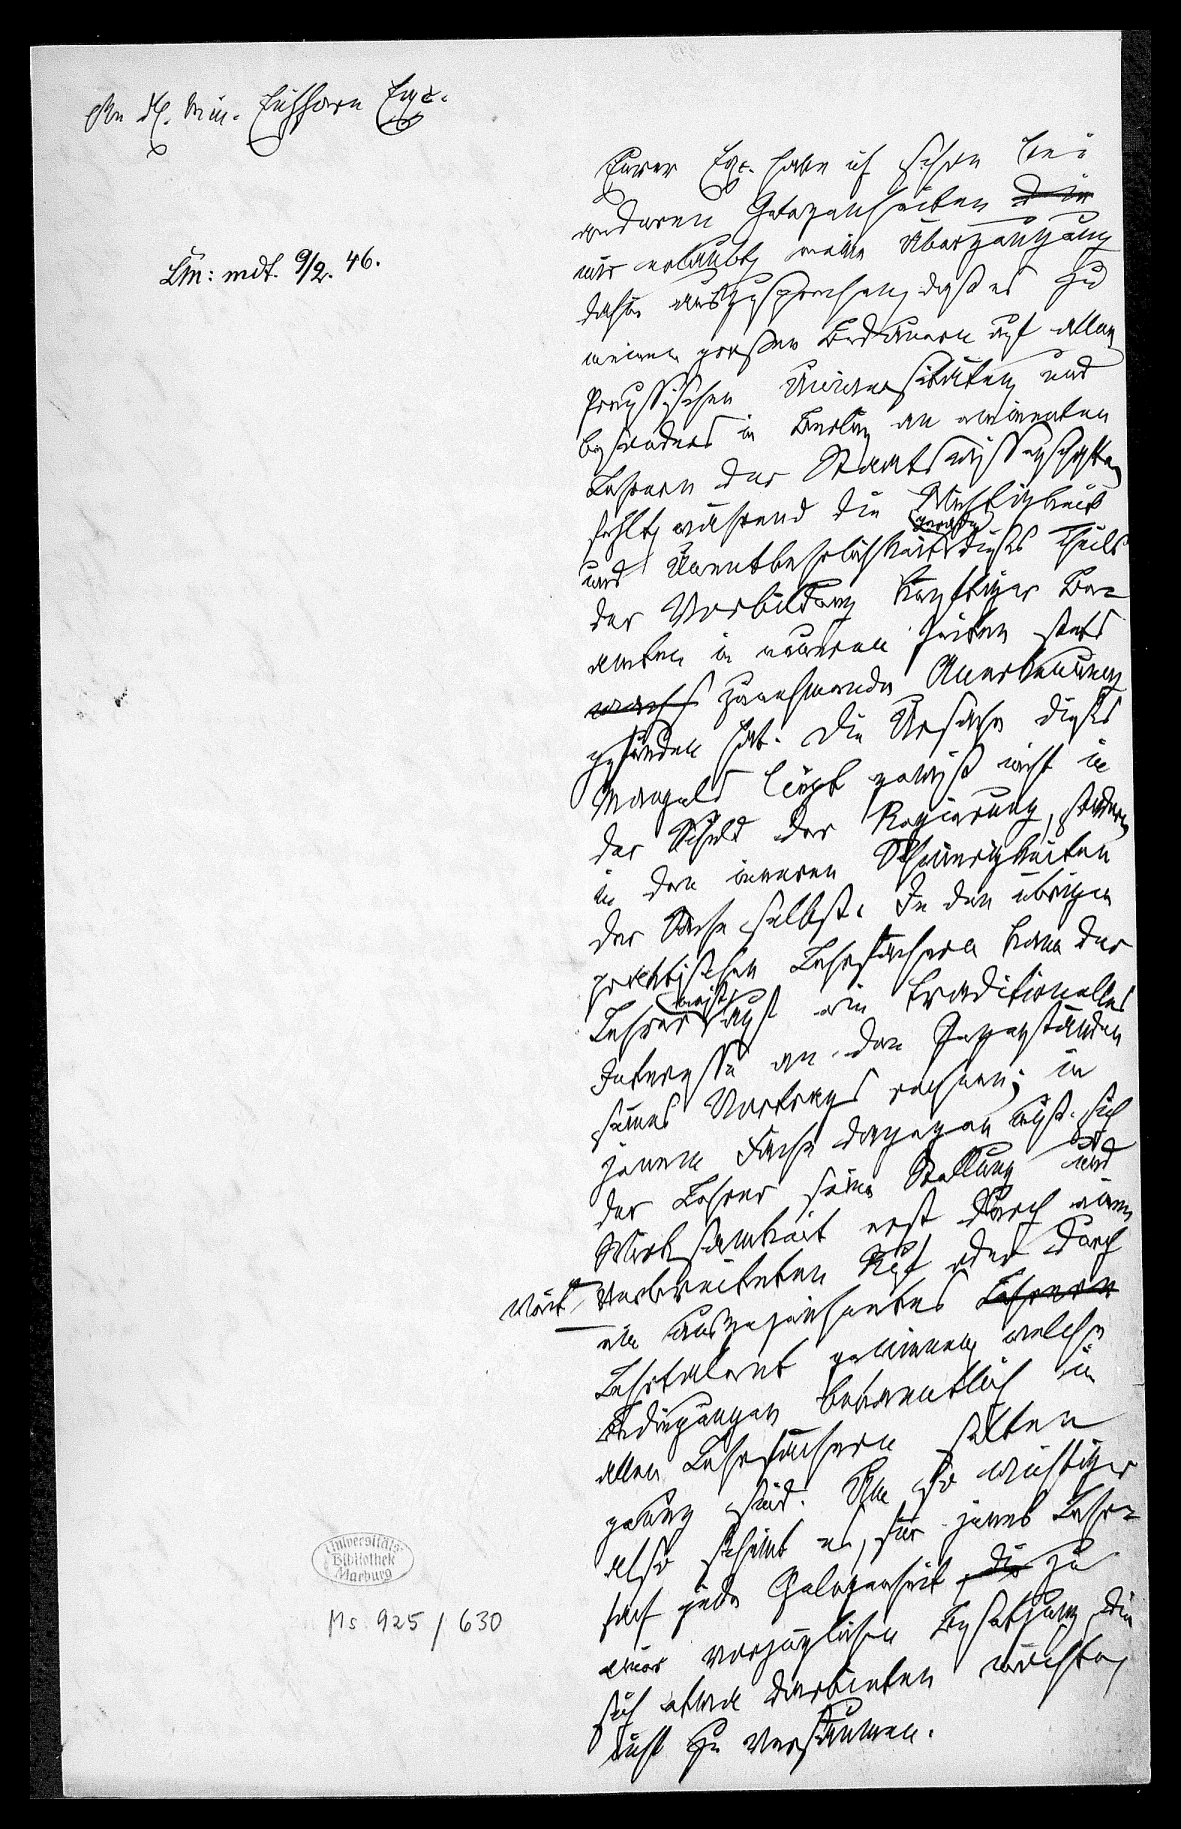 An H. Min. Eichhorn Exc.
Lm: mdt. 9/2. 46.
Eurer Exc. habe ich schon bei
anderen Gelegenheiten die
mir erlaubt, meine Überzeugung
dahin auszusprechen, daß es zu
meinem großen Bedauern auf allen
Preußischen Universitäten, und
besonders in Berlin, an eminenten
Lehrern der Staatswissenschaften
fehlt, während die Wichtigkeit
und Unentbehrlichkeit gerade dieses Theils
der Vorbildung künftiger Be-
amten in neueren Zeiten stets
zunehmende Anerkennung
gefunden hat. Die Ursache dieses
Mangels liegt gewiß nicht in
der Schuld der Regierung, sondern
in den inneren Schwierigkeiten
der Sache selbst. In den übrigen
praktischen Lehrfächern kann der
Lehrer meist auf ein traditionelles
Interesse an den Gegenständen
seines Vortrags rechnen; in
jenem Fache dagegen muß sich
der Lehrer seine Stellung und
Wirksamkeit erst durch einen
weit verbreiteten Ruf oder durch
ein ausgezeichnetes Lehrer
Lehrtalent gewinnen, welche
Bedingungen bekanntlich in
allen Lehrfächern selten
genug sind. Um so wichtiger
also scheint es, für jenes Lehr-
fach jede Gelegenheit die zu
einer vorzüglichen Besetzung, die
sich etwa darbieten möchte,
nicht zu versäumen.
Universitäts
Bibliothek
Marburg
Ms. 925 / 630